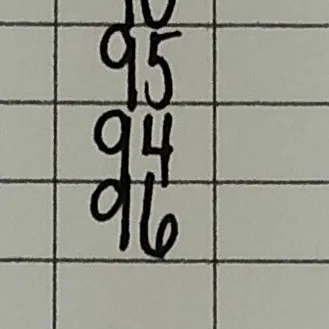 95
94
96